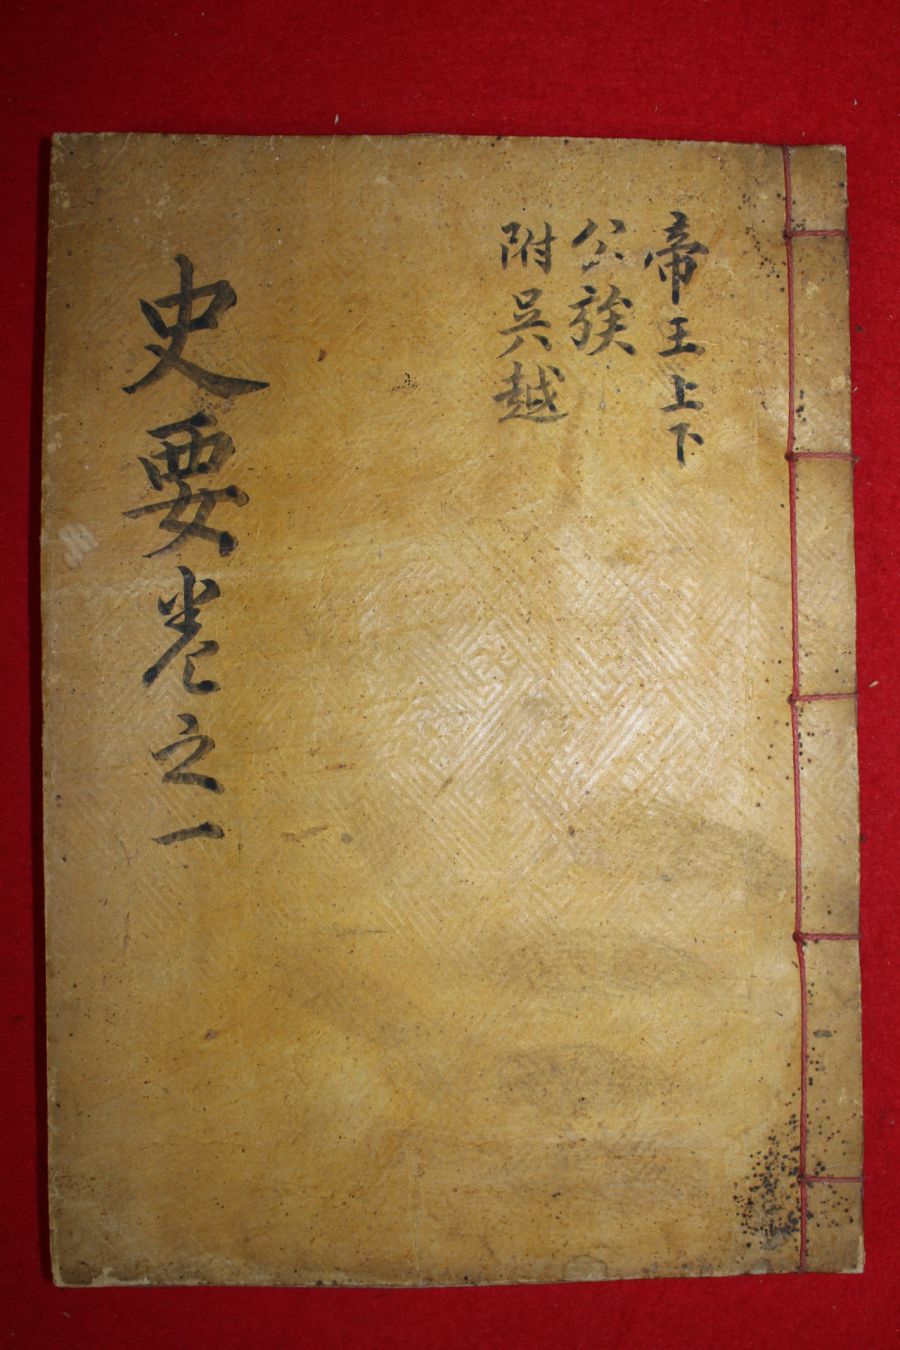 帝王上下
公族
附吳越
史要卷之一